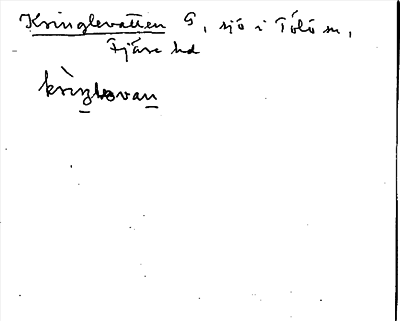 Kringlevatten G, sjö i Tölö sn,
Fjäre hd
krìŋləvan